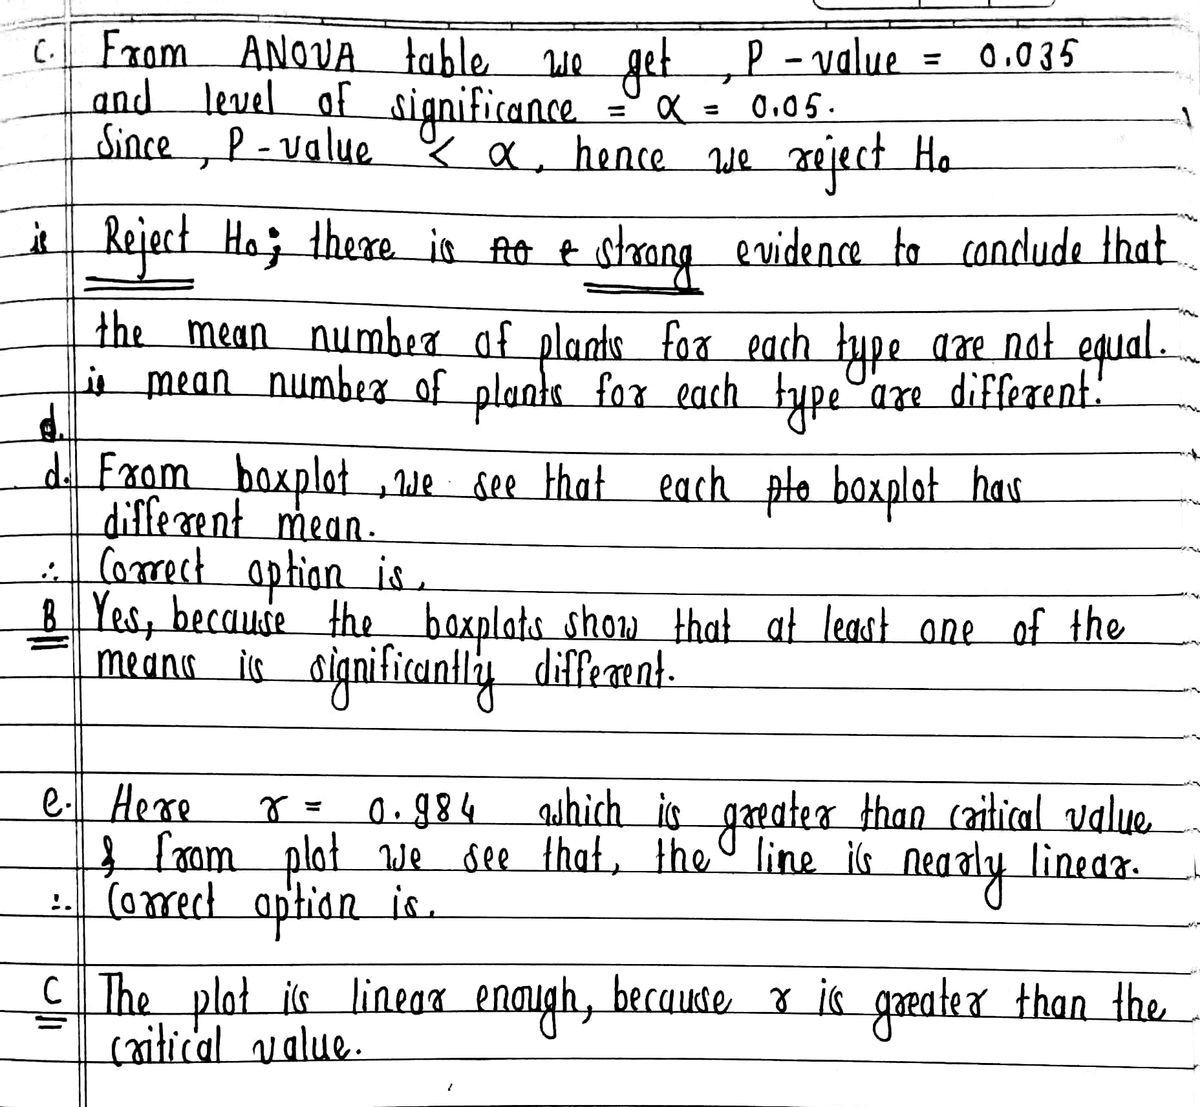 c. From ANOVA table we get, P-value = 0.035
and level of significance = α = 0.05.
Since, P-value < α, hence we reject H₀
ie Reject H₀; there is no e strong evidence to conclude that
the mean number of plants for each type are not equal.
ie mean number of plants for each type are different.
d.
d. From boxplot, we see that each plo boxplot has
different mean.
∴ Correct option is,
B Yes, because the boxplots show that at least one of the
means is significantly different.
e. Here r = 0.984 which is greater than critical value
& from plot we see that, the line is nearly linear.
∴ Correct option is.
C The plot is linear enough, because r is greater than the
critical value.